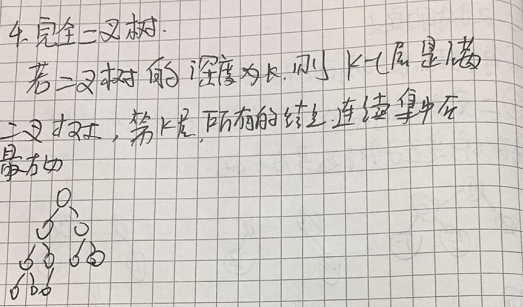 4.完全二叉树.
若二叉树的深度为k.则 k-1层是满
二叉树,第k层,所有的结点连续集中在
最左边